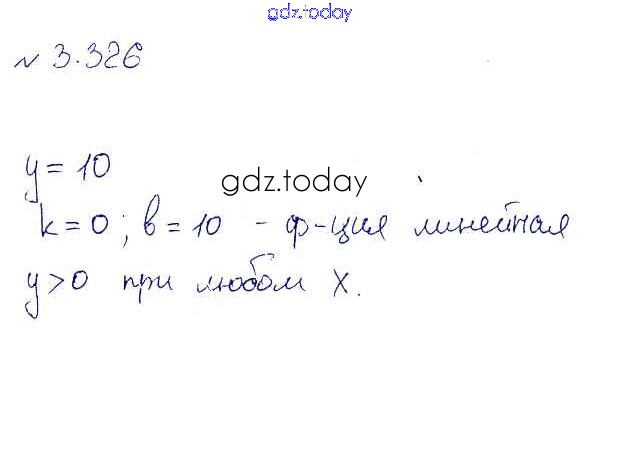 gdz.today
№ 3.326
y = 10
gdz.today
k = 0 ; b = 10 - ф-ция линейная
y > 0 при любом x.